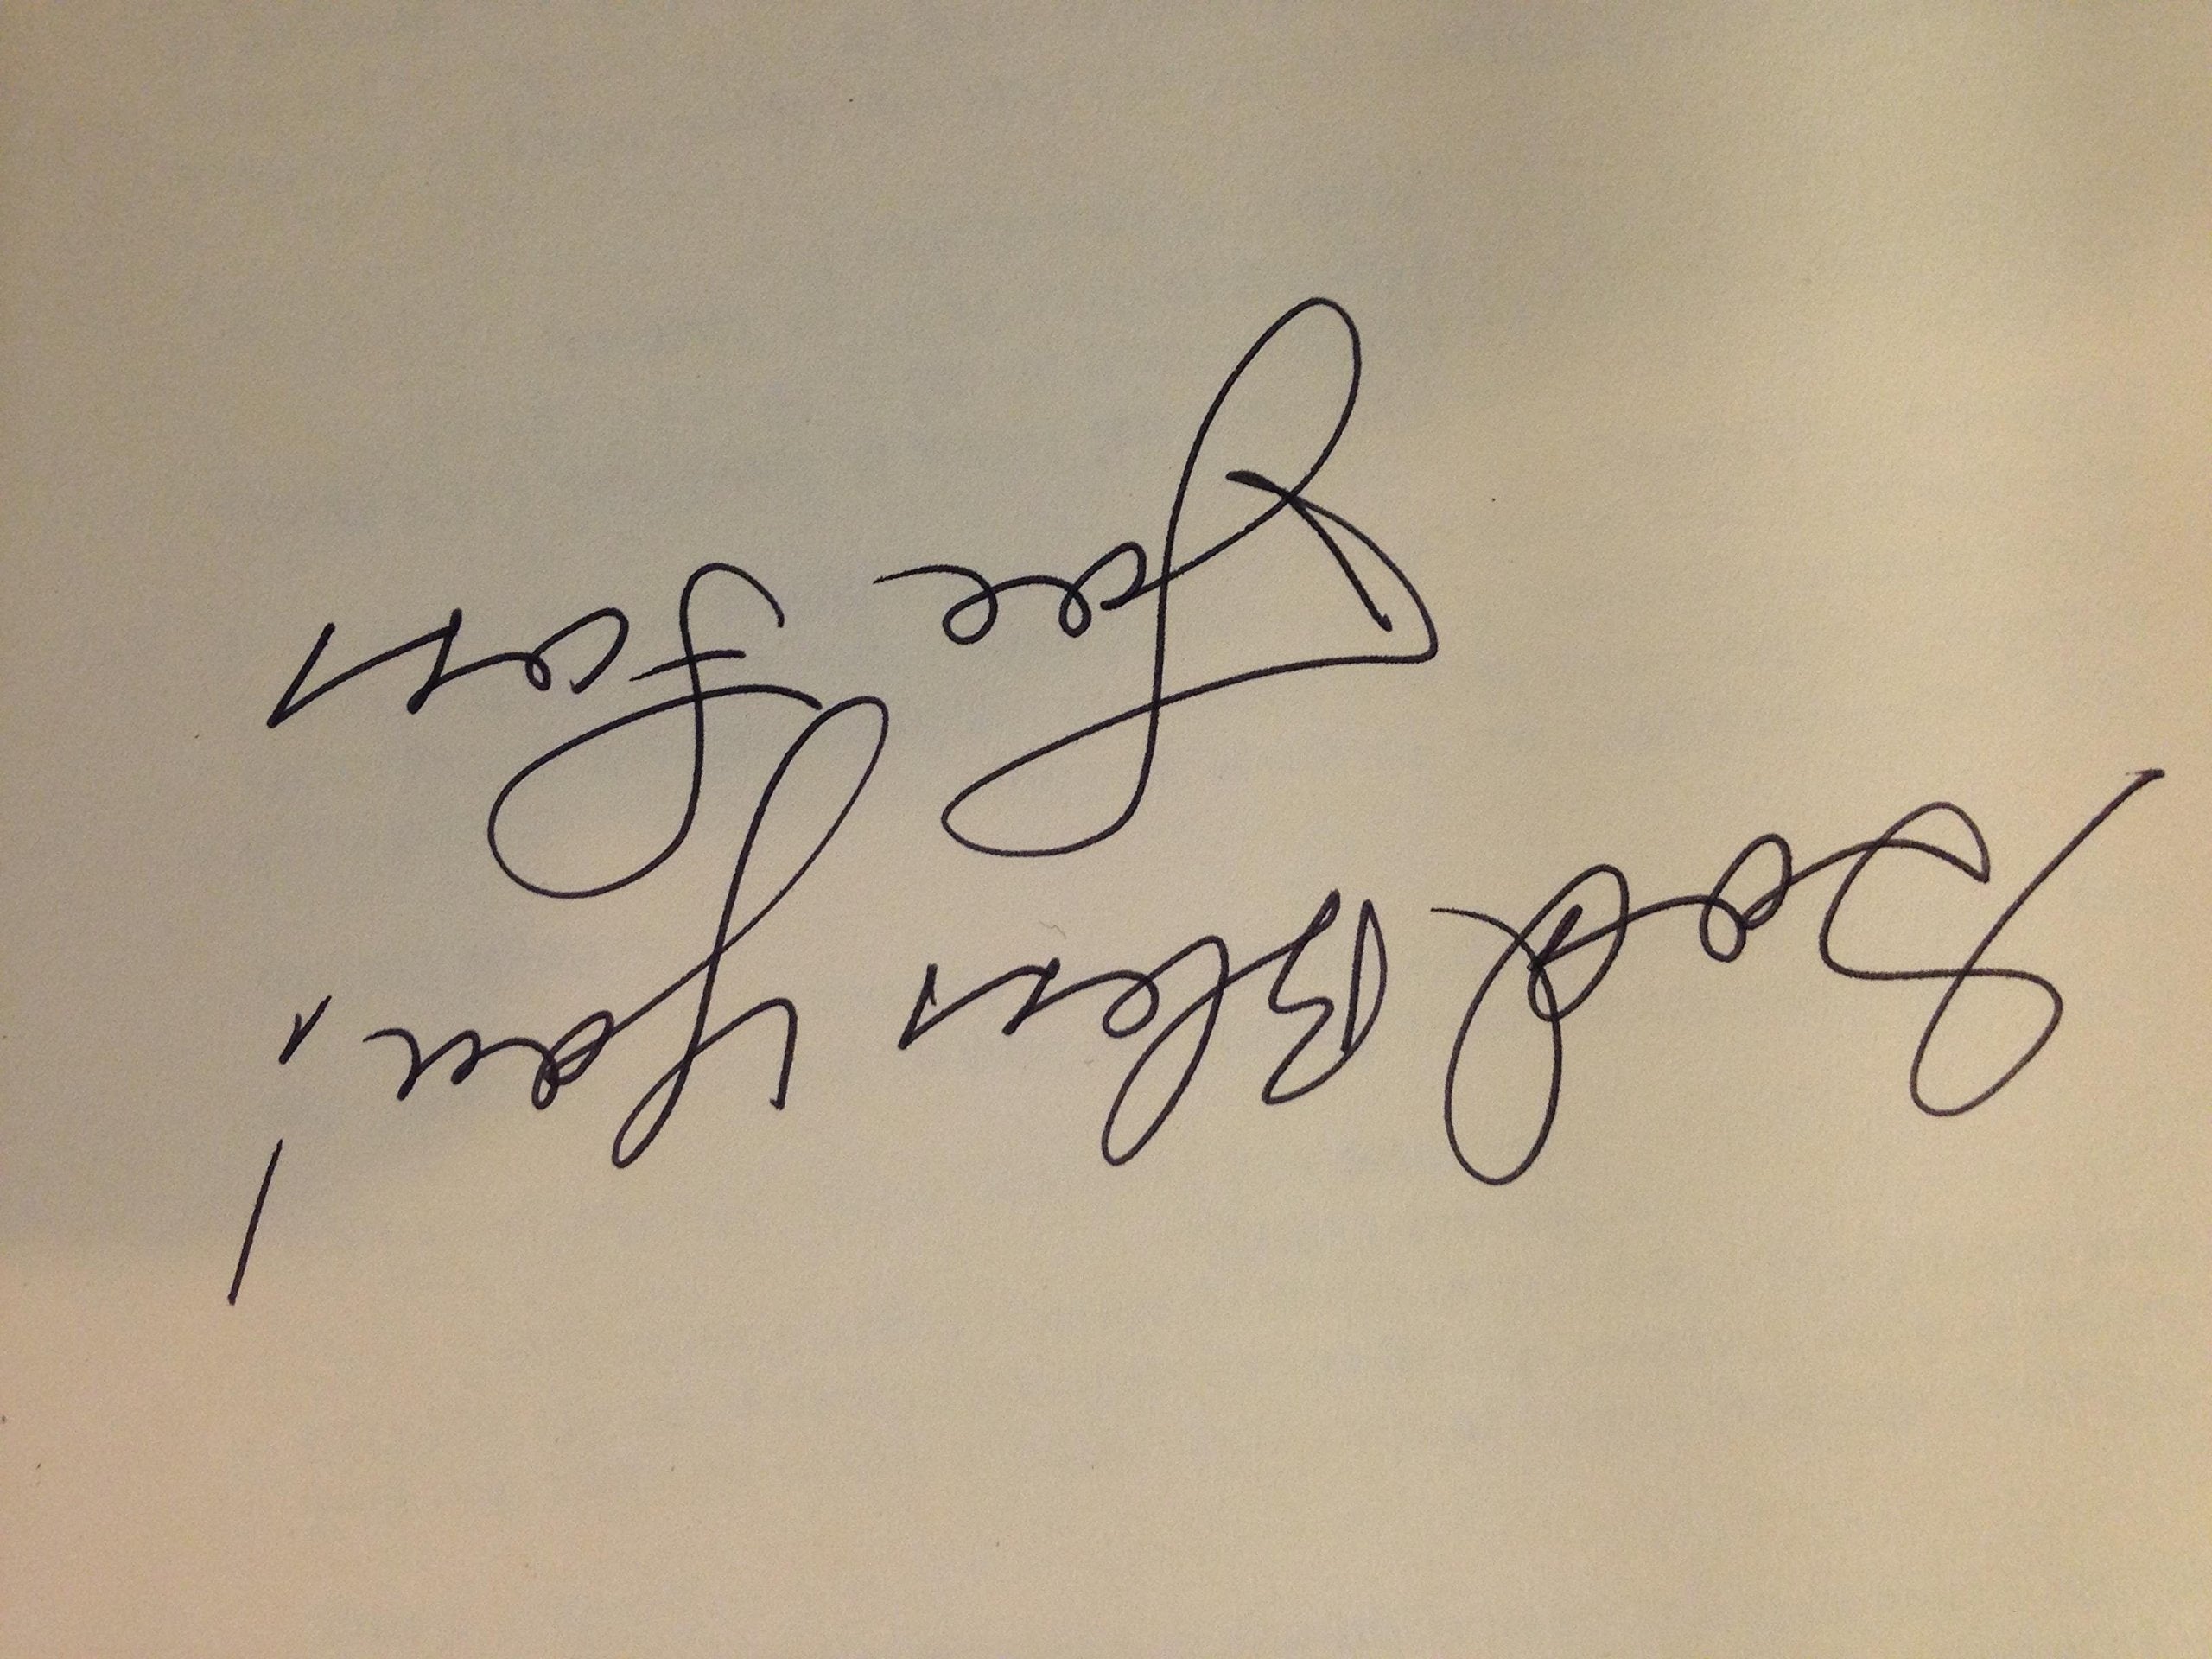 God Bless You!
Joe Foss